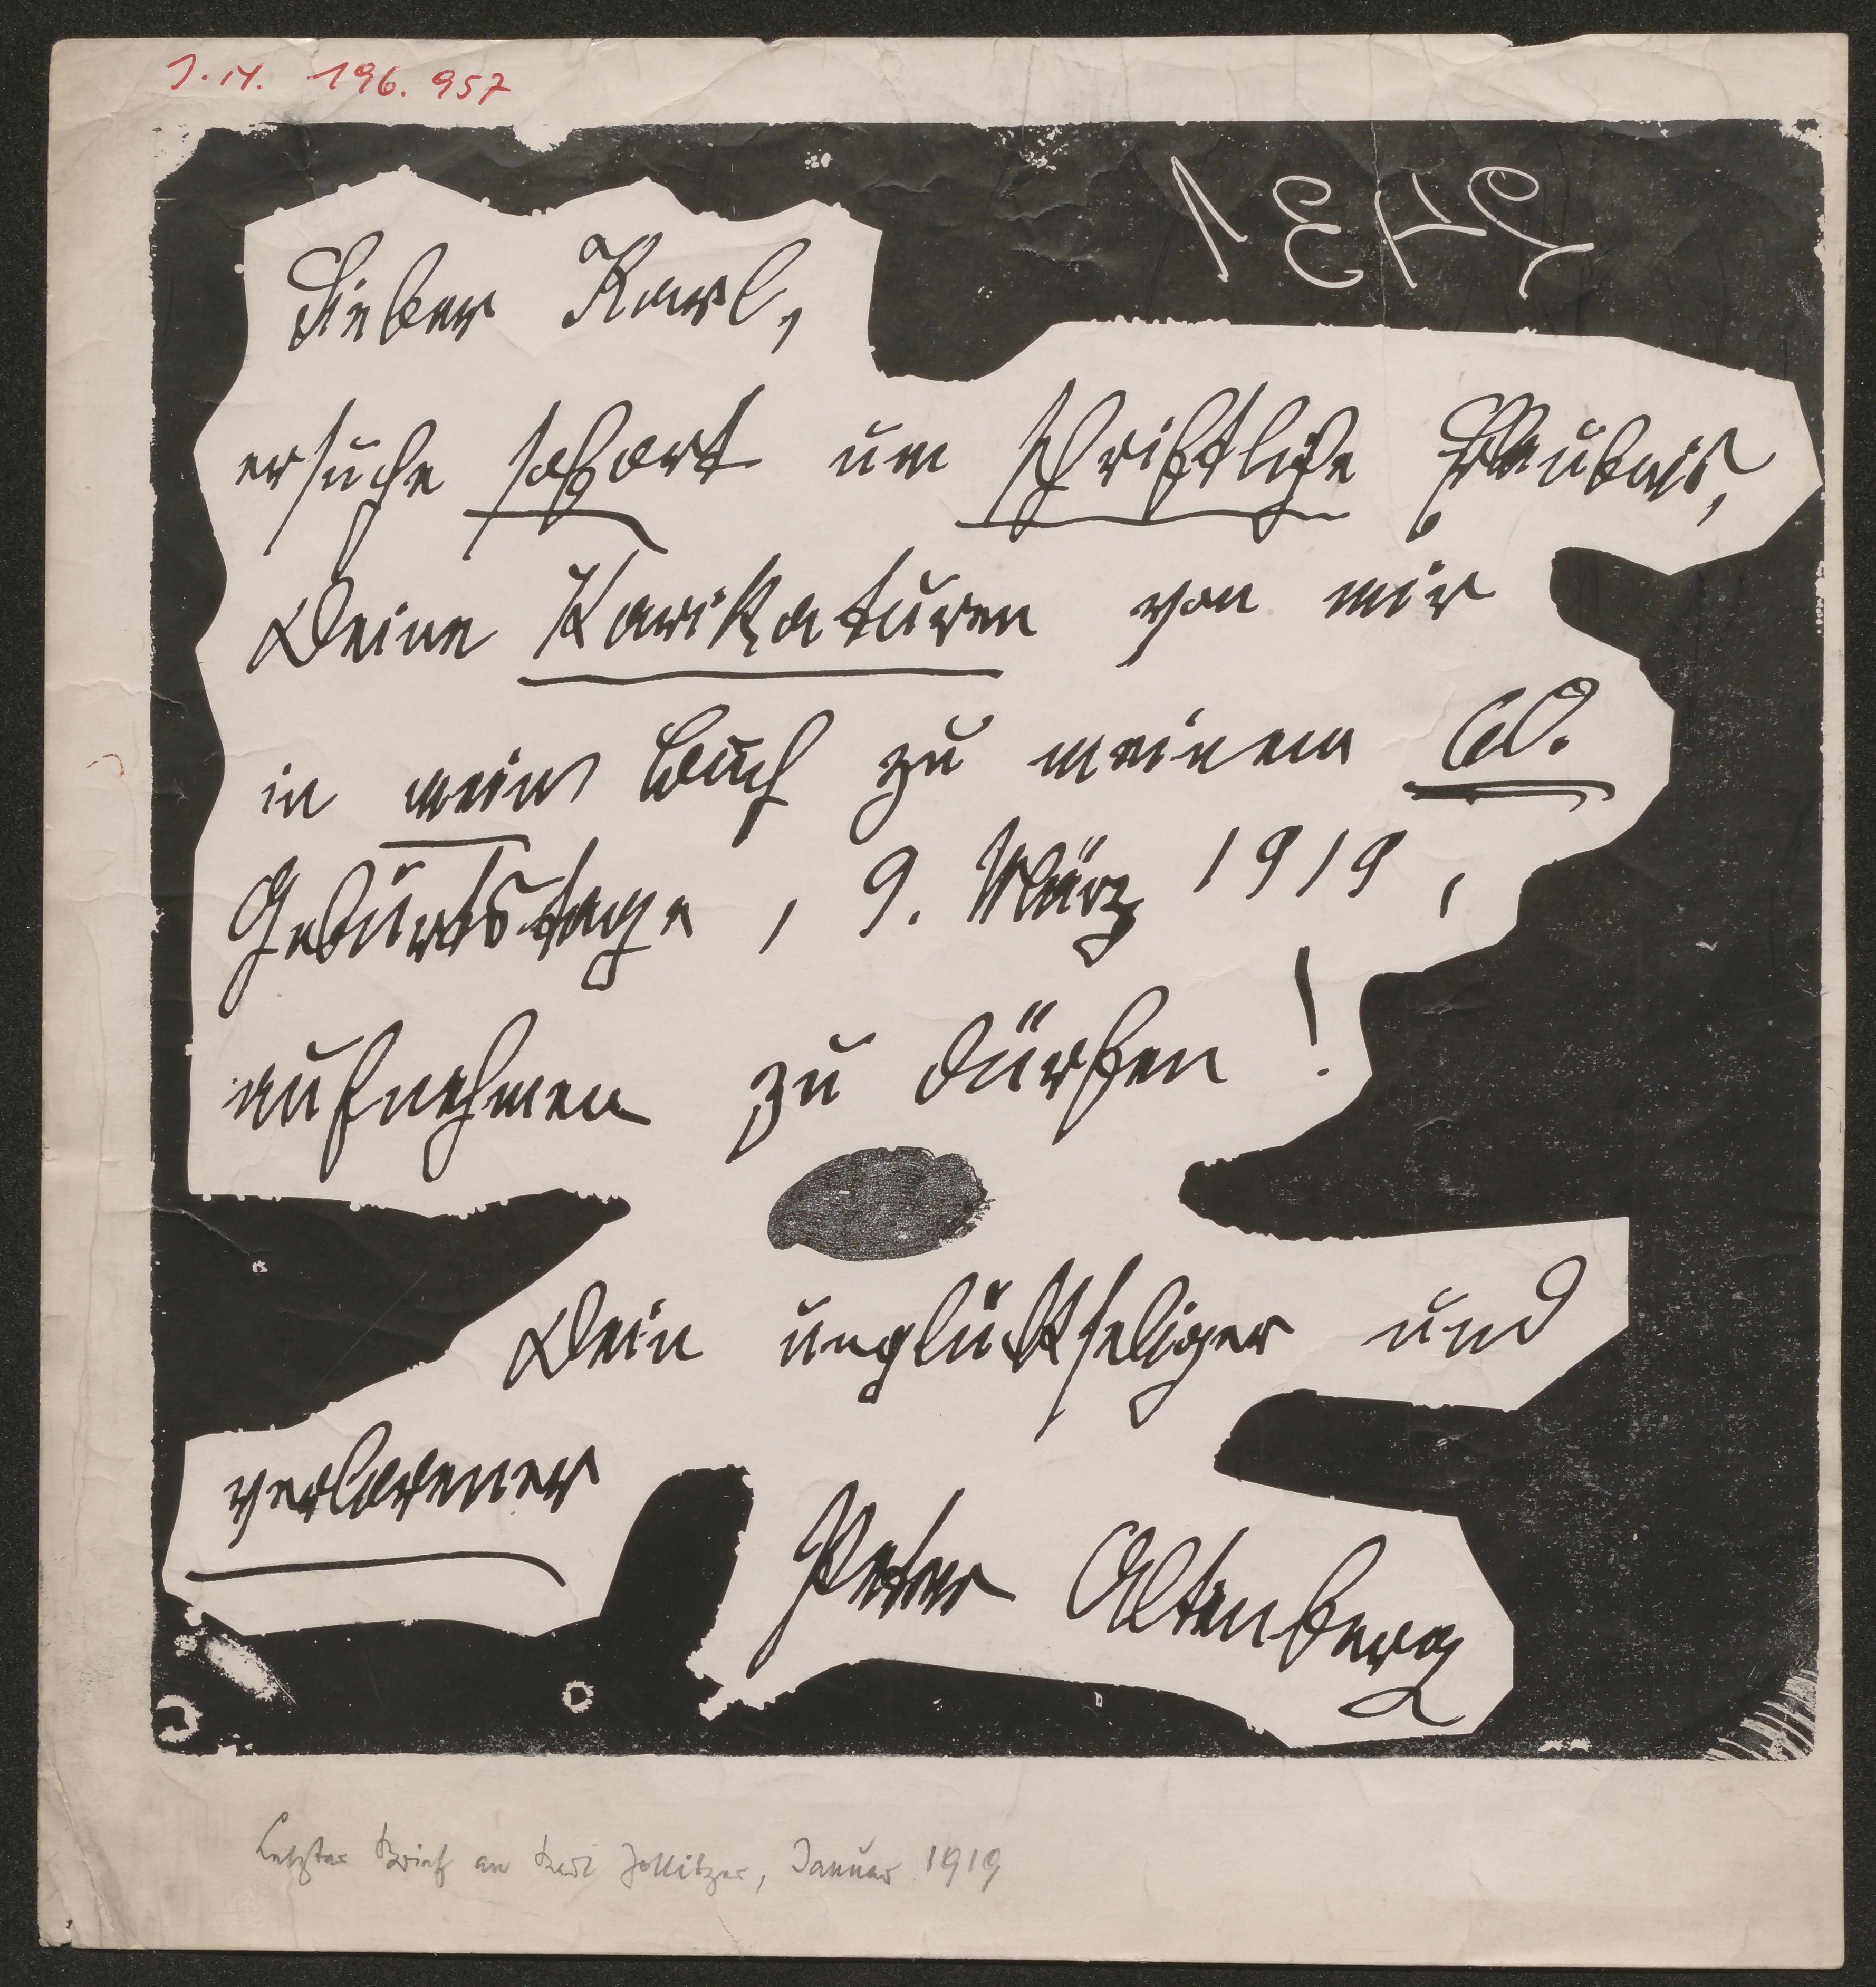 I.N. 196.957
Lieber Karl,
ersuche sofort um schriftliche Erlaubnis,
Deine Karikaturen von mir
in mein Buch zu meinem 60.
Geburtstage, 9. März 1919,
aufnehmen zu dürfen!
Dein unglückseliger und
verlorener
Peter Altenberg
Letzter Brief an Karl Jollitzer, Januar 1919